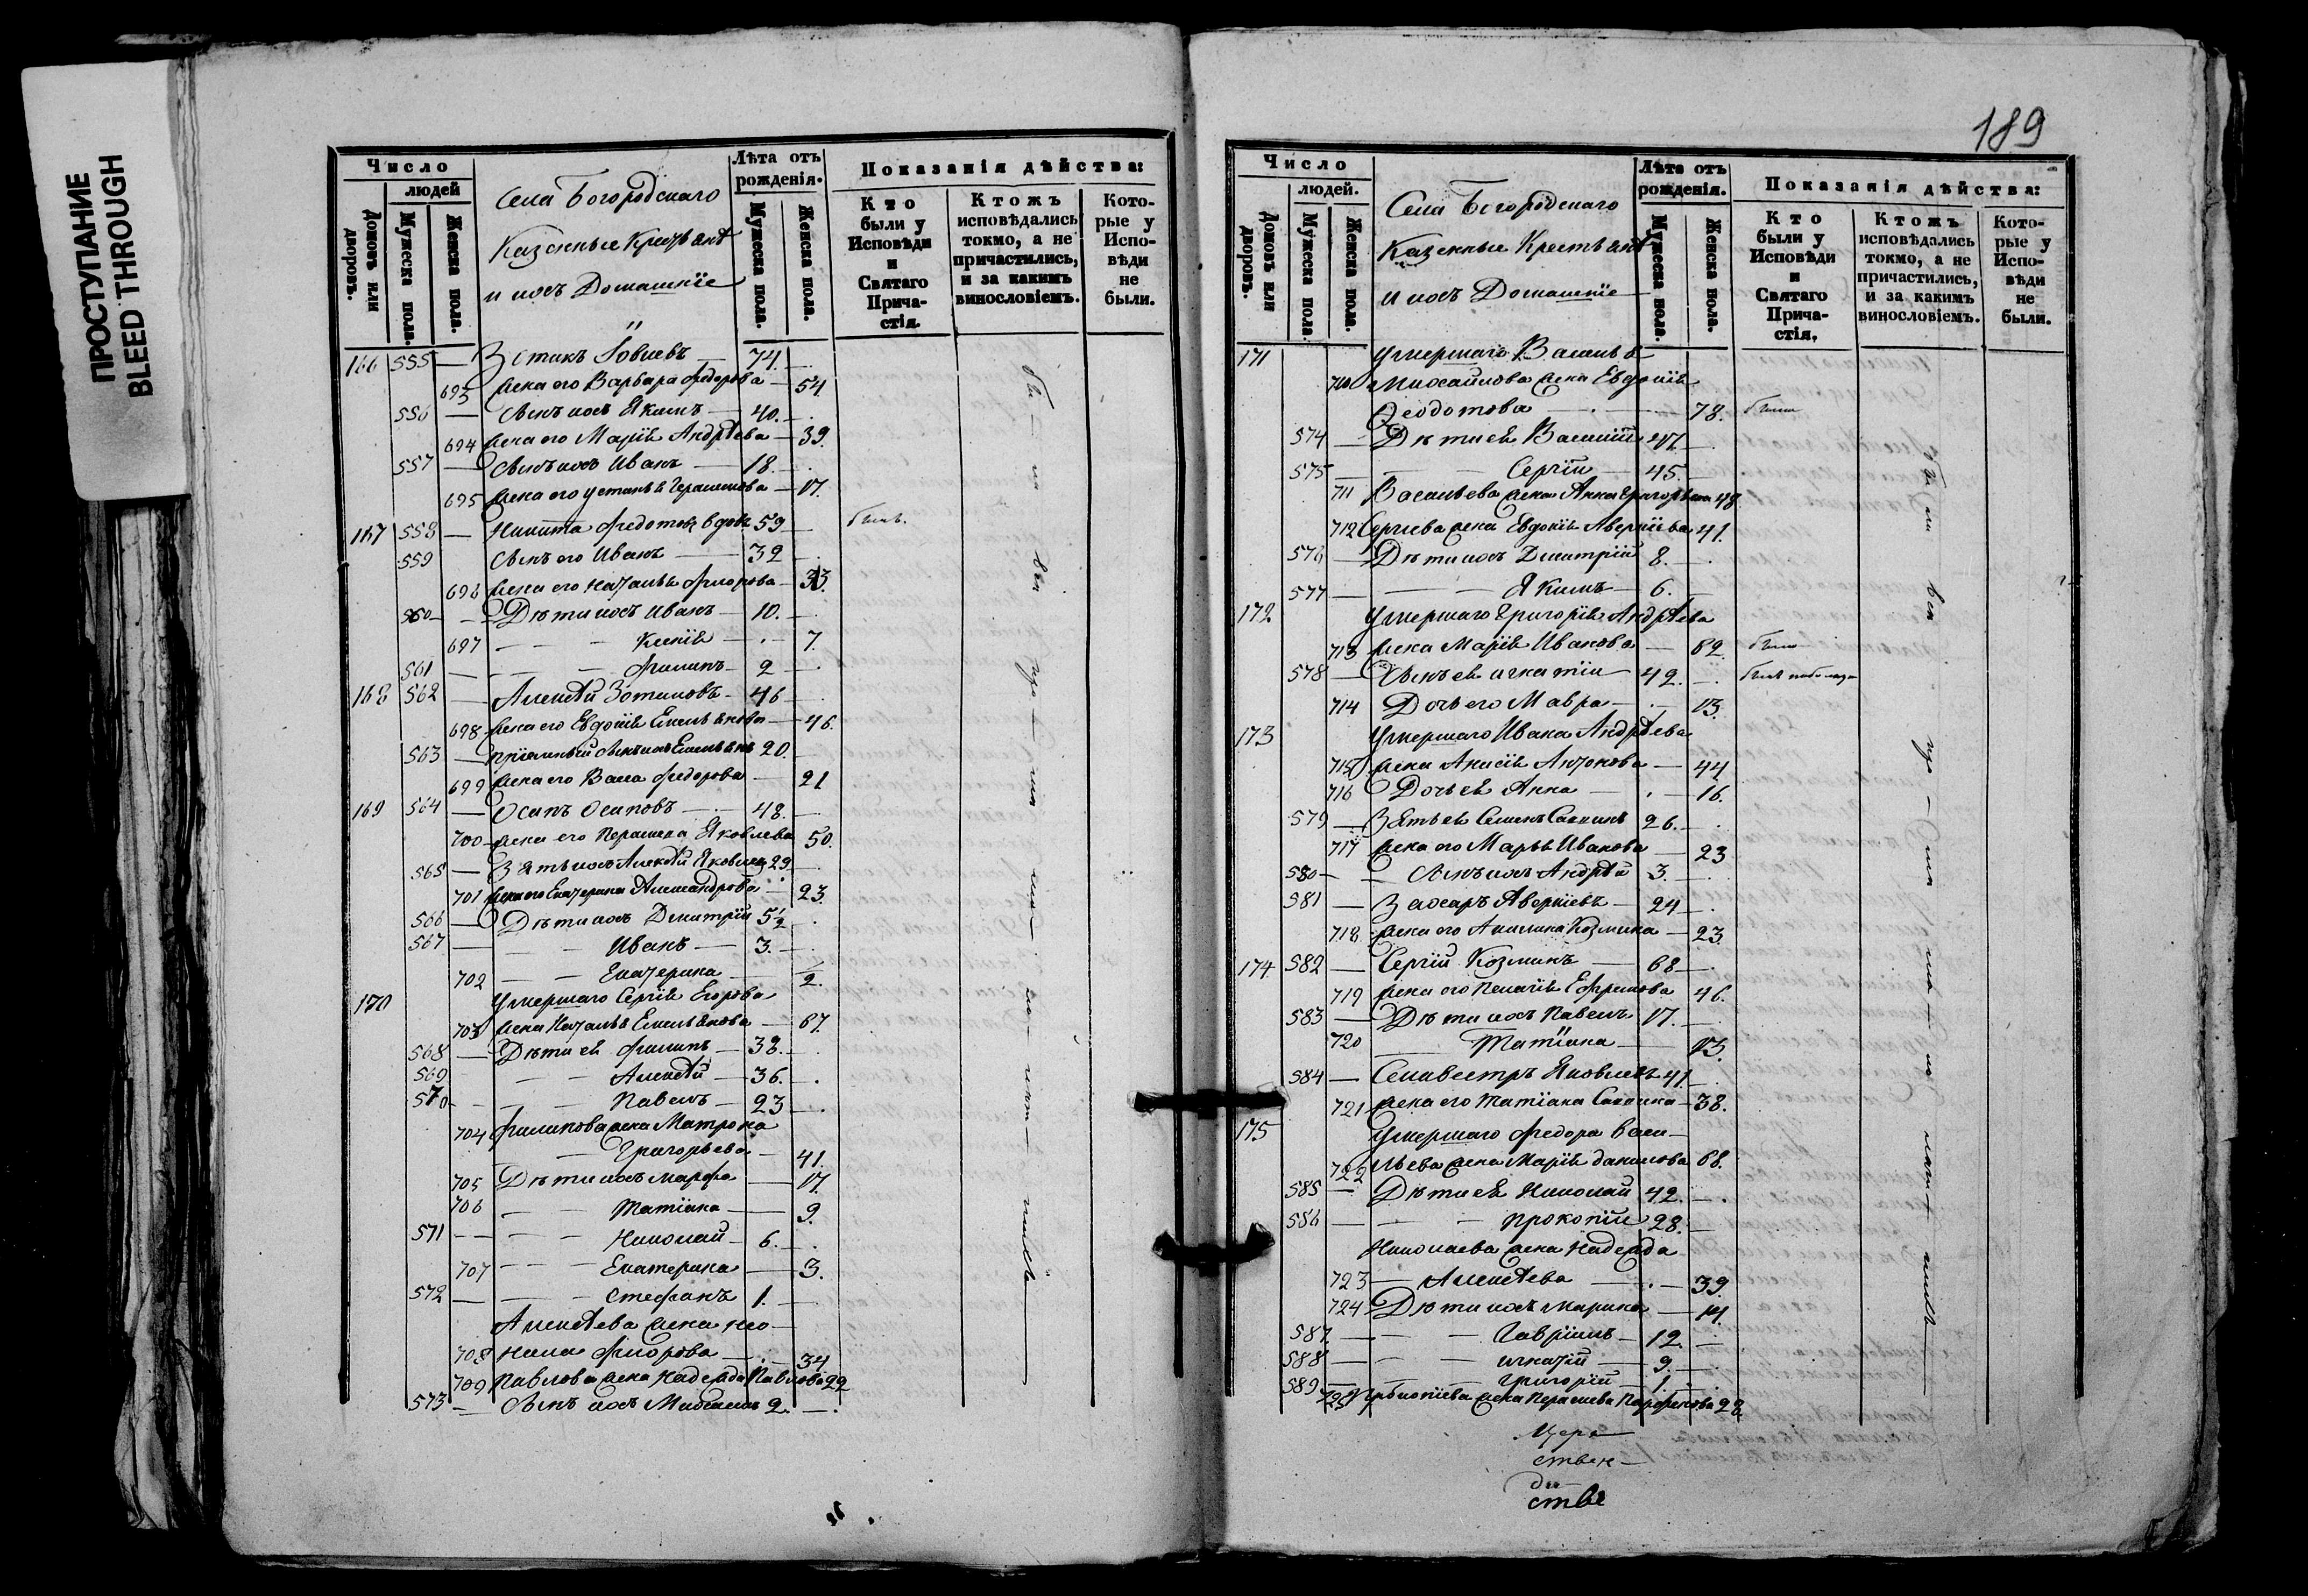 ПРОСТУПАНИЕ
BLEED THROUGH
Число
людей
Домовъ или дворовъ.
Мужеска пола.
Женска пола.
Села Богородскаго
Казенные Крестьяне
и ихъ Домашніе
Лѣта отъ рожденія.
Мужеска пола.
Женска пола.
Показанія дѣйства:
Кто были у Исповѣди и Святаго Причастія.
Ктожъ исповѣдались токмо, а не причастились, и за какимъ винословіемъ.
Которые у Исповѣди не были.
166 555 — 74.
693 жена его Варвара Федорова — 54
556 — Сынъ ихъ Якимъ — 40.
694 жена его Марія Андрѣева — 39.
557 — Сынъ ихъ Иванъ — 18.
695 жена его Устинья Герасимова — 17.
167 558 — Никита Федотовъ вдовъ 59 былъ.
559 Сынъ его Иванъ — 32
696 жена его Наталья Флорова — 33.
560 — Дѣти ихъ Иванъ — 10.
697 — Ксенія — 7.
561 — Филипъ — 2
168 562 — Алексѣй Зотиковъ — 46
698 жена его Евдокія Емельянова — 46.
563 — пріемный сынъ ихъ Емельянъ 20.
699 жена его Васса Федорова — 21
169 564 — Осипъ Осиповъ — 48.
700 жена его Параскева Яковлева 50.
565 — Зять ихъ Алексѣй Яковлевъ 29
701 жена его Екатерина Александрова — 23.
566 — Дѣти ихъ Дмитрій 5½
567 — Иванъ — 3.
702 — Екатерина — 2.
170 Умершаго Сергія Егорова
703 жена Наталья Емельянова — 67.
568 — Дѣти ея Филипъ — 38.
569 — Алексѣй — 36.
570 — Павелъ — 23
704 Филипова жена Матрона
Григорьева — 41.
705 Дѣти ихъ Марфа — 17.
706 — Татіана — 9.
571 — Николай — 6.
707 — Екатерина — 3.
572 — Стефанъ 1.
Алексѣева жена Нео-
708 нила Флорова — 34
709 Павлова жена Надежда Павлова 22
573 — Сынъ ихъ 2.
189
Число
людей.
Домовъ или дворовъ.
Мужеска пола.
Женска пола.
Села Богородскаго
Казенные Крестьяне
и ихъ Домашніе
Лѣта отъ рожденія.
Мужеска пола.
Женска пола.
Показанія дѣйства:
Кто были у Исповѣди и Святаго Причастія.
Ктожъ исповѣдались токмо, а не причастились, и за какимъ винословіемъ.
Которые у Исповѣди не были.
171 Умершаго Василья
710 Михайлова жена Евдокія
Ѳеодотова — 78. была
574 — Дѣти ея Василій 47.
575 — Сергій — 45.
711 Васильева жена Анна Григорьева 48
712 Сергіева жена Евдокія Аверкіева 41.
576 — Дѣти ихъ Дмитрій 8.
577 — Якимъ — 6.
172 Умершаго Григорія Андрѣева
713 жена Марія Иванова — 62. была
578 — Сынъ ея Игнатій — 42. былъ
714 Дочь его Мавра — 13.
173 Умершаго Ивана Андрѣева
715 жена Анисія Антонова — 44
716 Дочь ея Анна — 16.
579 — Зять ея Семенъ Савинъ 26.
717 жена его Марья Иванова — 23
580 — Сынъ ихъ Андрѣй 3.
581 — Захаръ Аверкіевъ — 24
718 жена его Акилина Козмина — 23.
174 582 — Сергій Козминъ — 68
719 жена его Пелагія Ефремова 46.
583 — Дѣти ихъ Павелъ 17.
720 Татіана — 13.
584 — Силвестръ Яковлевъ 41.
721 жена его Татіана Савина — 38.
175 Умершаго Федора Васи-
722 льева жена Марія Данилова 68.
585 — Дѣти ея Николай 42.
586 — Прокопій 28.
Николаева жена Надежда
723 — Алексѣева — 39.
724 Дѣти ихъ Марина — 14.
587 — Гавріилъ — 12.
588 — Игнатій — 9.
589 — Григорій 1.
725 Прокопіева жена Параскева Парфенова 28